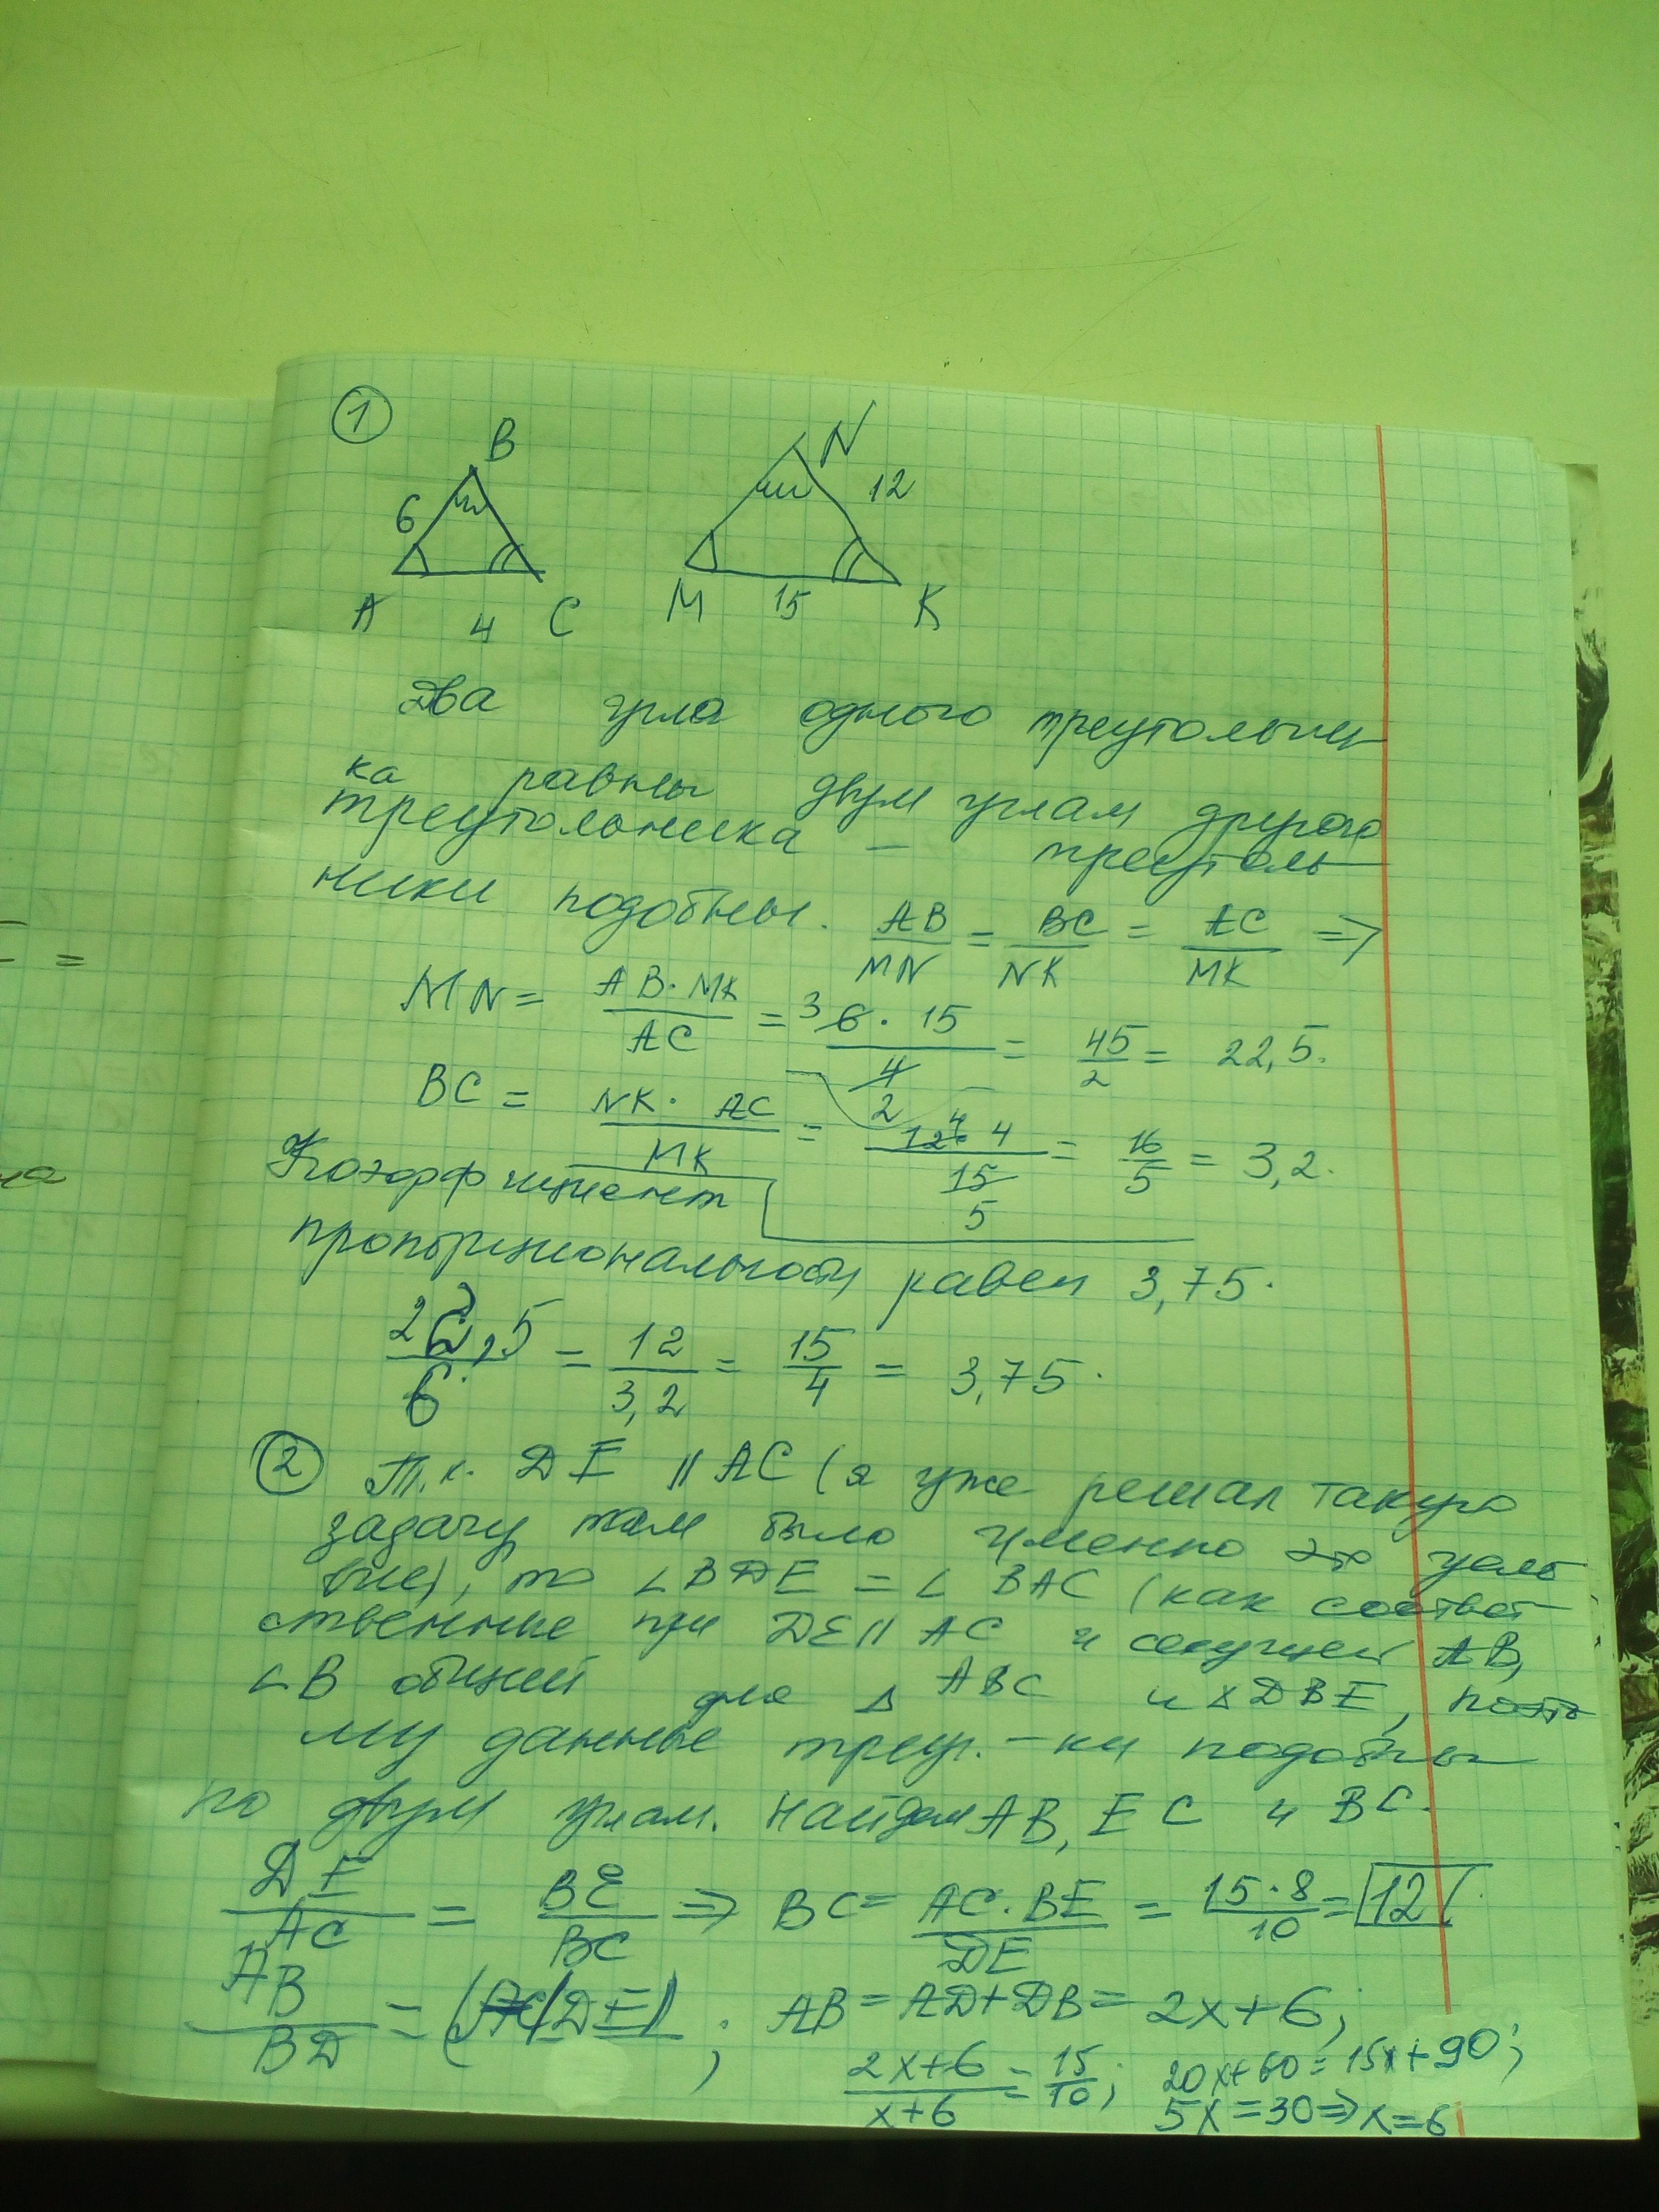 1
B
N
6
12
A
4
C
M
15
K
Два угла одного треугольни
ка равны двум углам другого
треугольника – треуголь
ники подобны. AB/MN = BC/NK = AC/MK =>
MN = AB·MK/AC = 3 6·15/4 2 = 45/2 = 22,5.
BC = NK·AC/MK = 12 4·4/15 5 = 16/5 = 3,2.
Коэффициент
пропорциональности равен 3,75.
22,5/6 = 12/3,2 = 15/4 = 3,75.
2 Т.к. DE || AC (я уже решал такую
задачу там было именно это усло
вие), то ∠BDE = ∠BAC (как соответ
ственные при DE || AC и секущей AB,
∠B общий для △ABC и △DBE, поэто
му данные треуг.-ки подобны
по двум углам. Найдем AB, EC и BC.
DE/AC = BE/BC => BC = AC·BE/DE = 15·8/10 = 12.
AB/BD = (AC/DE); AB = AD+DB = 2x+6;
2x+6/x+6 = 15/10; 20x+60 = 15x+90;
5x=30=>x=6